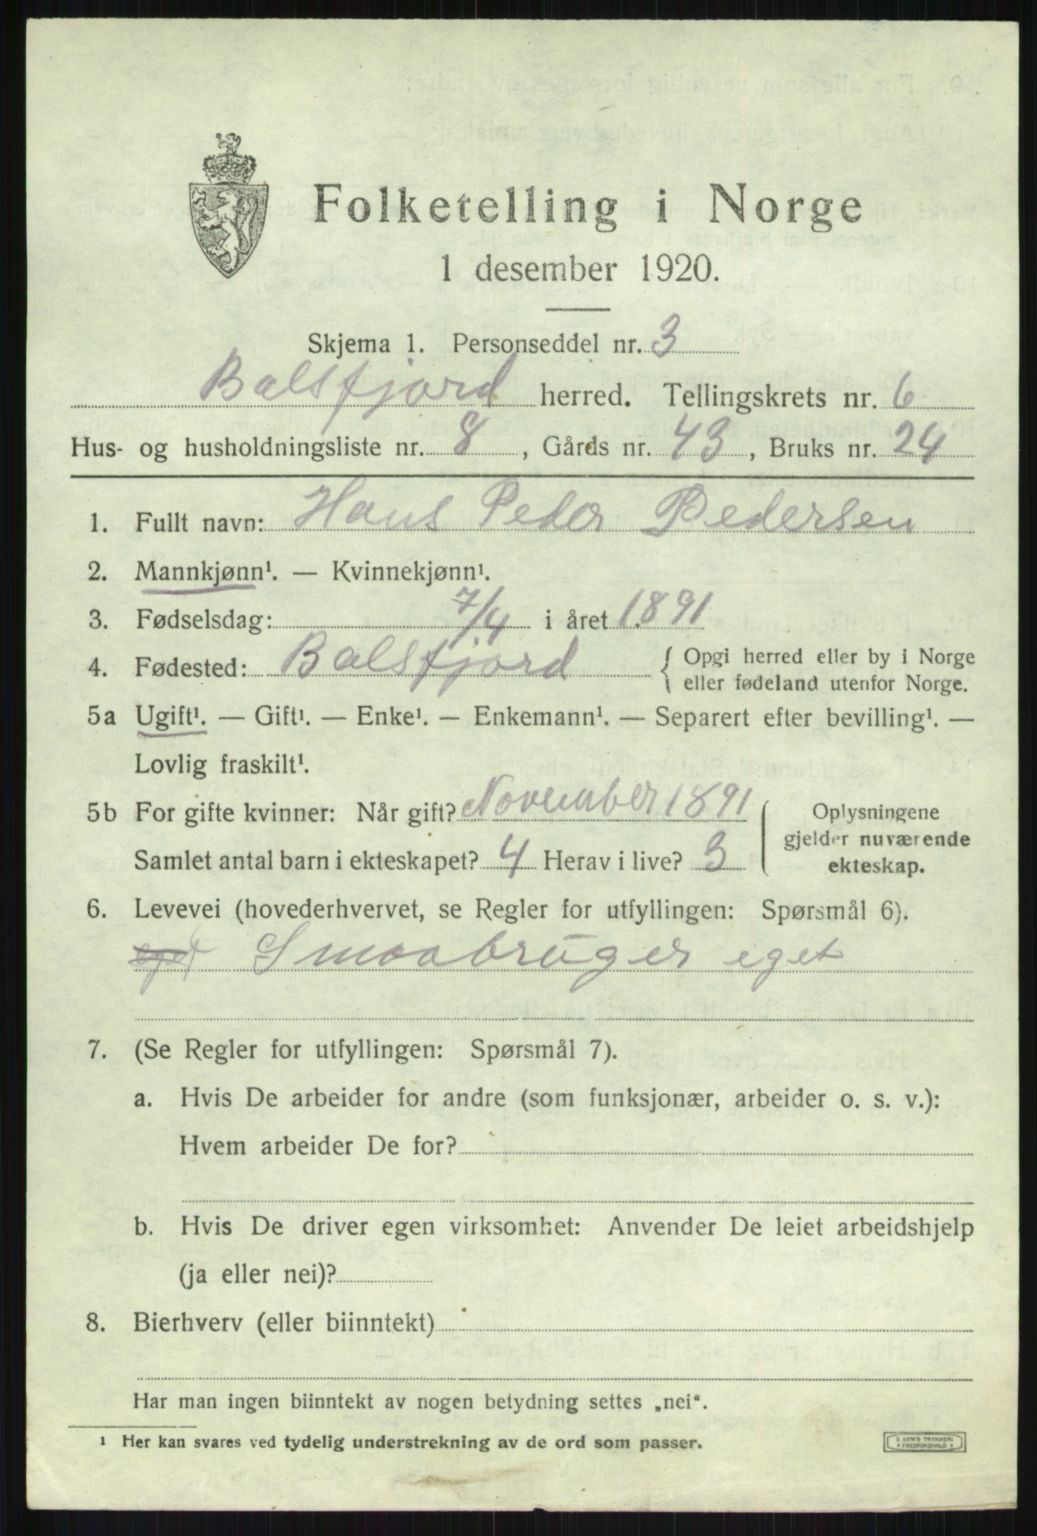 Folketelling i Norge
1 desember 1920.
Skjema 1. Personseddel nr. 3
Balsfjord herred. Tellingskrets nr. 6
Hus- og husholdningsliste nr. 8, Gårds nr. 43, Bruks nr. 24
1. Fullt navn: Hans Peder Pedersen
2. Mannkjønn¹. — Kvinnekjønn¹.
3. Fødselsdag: 7/4 i året 1891
4. Fødested: Balsfjord { Opgi herred eller by i Norge
eller fødeland utenfor Norge.
5a Ugift¹. — Gift¹. — Enke¹. — Enkemann¹. — Separert efter bevilling¹. —
Lovlig fraskilt¹.
5b For gifte kvinner: Når gift? November 1891
Samlet antal barn i ekteskapet? 4 Herav i live? 3
Oplysningene
gjelder nuværende
ekteskap.
6. Levevei (hovederhvervet, se Regler for utfyllingen: Spørsmål 6).
eget Smaabruger eget
7. (Se Regler for utfyllingen: Spørsmål 7).
a. Hvis De arbeider for andre (som funksjonær, arbeider o. s. v.):
Hvem arbeider De for?
b. Hvis De driver egen virksomhet: Anvender De leiet arbeidshjelp
(ja eller nei)?
8. Bierhverv (eller biinntekt)
Har man ingen biinntekt av nogen betydning settes „nei“.
¹ Her kan svares ved tydelig understrekning av de ord som passer.